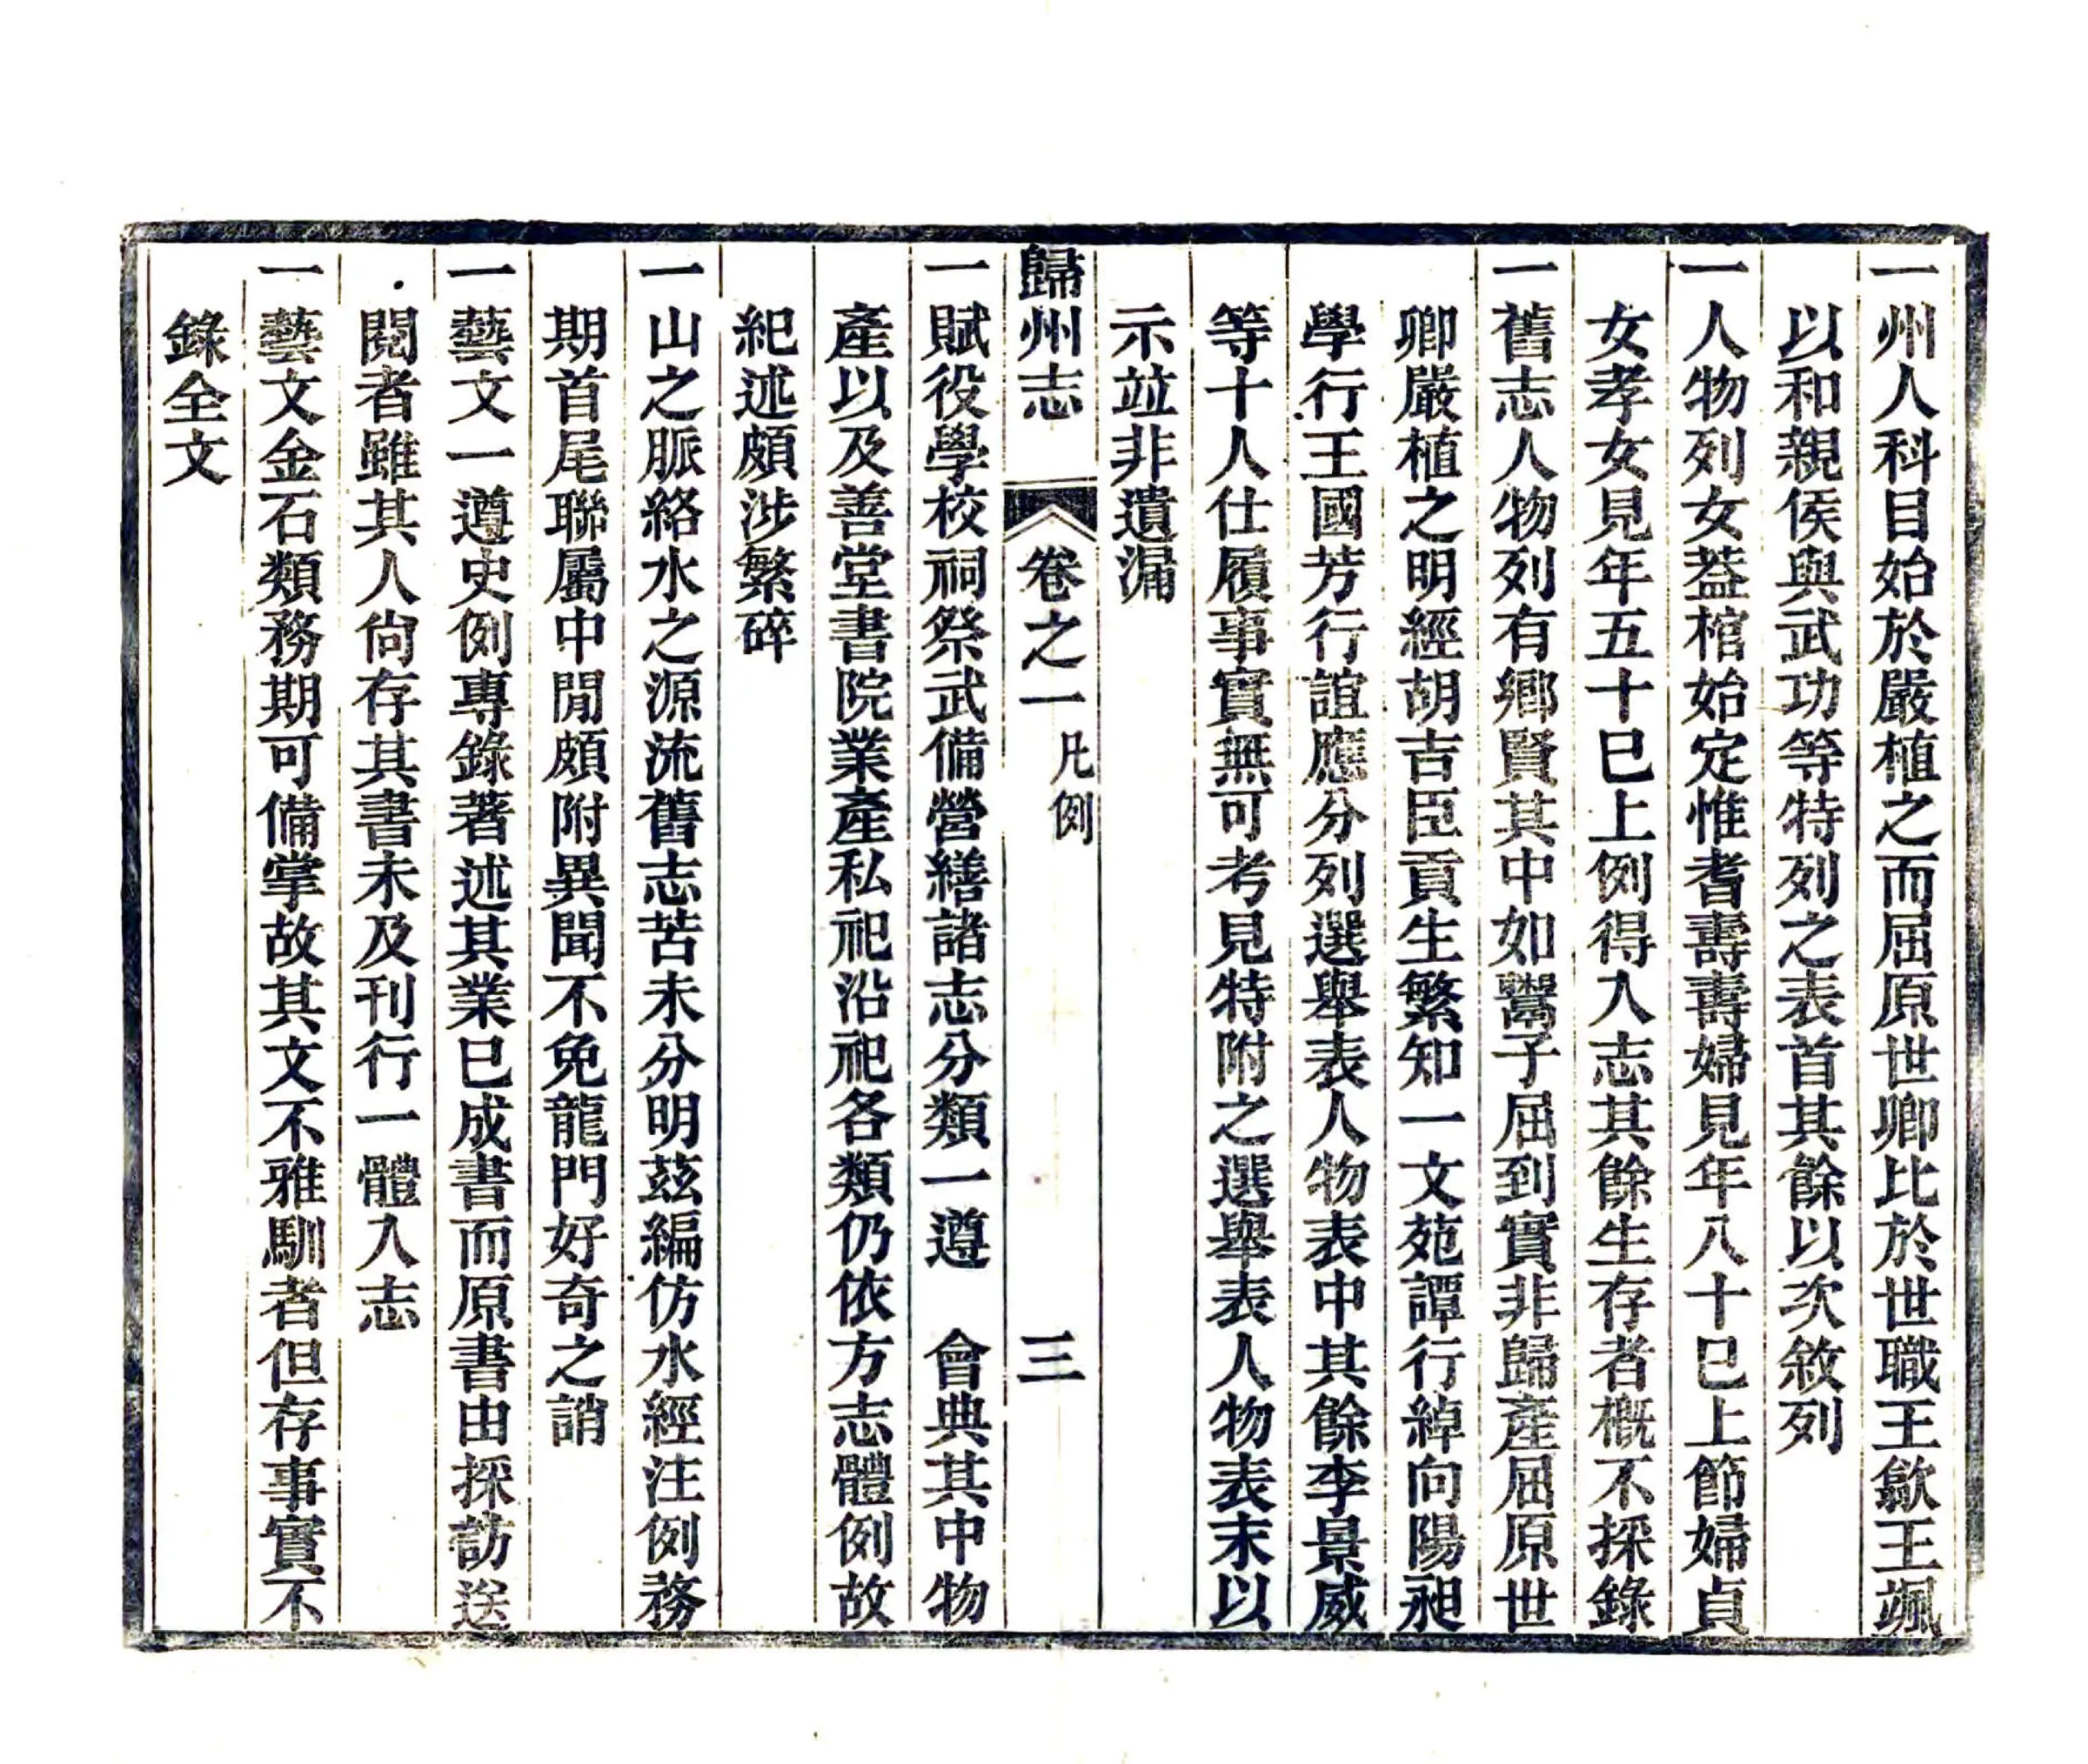 一州人科目始於嚴植之而屈原世卿比於世職王歙王颯
以和親侯與武功等特列之表首其餘以次敘列
一人物列女葢棺始定惟耆壽壽婦見年八十巳上節婦貞
女孝女見年五十巳上例得入志其餘生存者概不採錄
一舊志人物列有鄉賢其中如鬻子屈到實非歸產屈原世
卿嚴植之明經胡吉臣貢生繁知一文苑譚行綽向陽昶
學行王國芳行誼應分列選舉表人物表中其餘李景威
等十人仕履事實無可考見特附之選舉表人物表末以
示竝非遺漏
歸州志 卷之一 凡例 三
一賦役學校祠祭武備營繕諸志分類一遵 會典其中物
產以及善堂書院業產私祀沿祀各類仍依方志體例故
紀述頗涉繁碎
一山之脈絡水之源流舊志苦未分明茲編仿水經注例務
期首尾聯屬中閒頗附異聞不免龍門好奇之誚
一藝文一遵史例專錄著述其業巳成書而原書由採訪送
閱者雖其人尙存其書未及刊行一體入志
一藝文金石類務期可備掌故其文不雅馴者但存事實不
錄全文